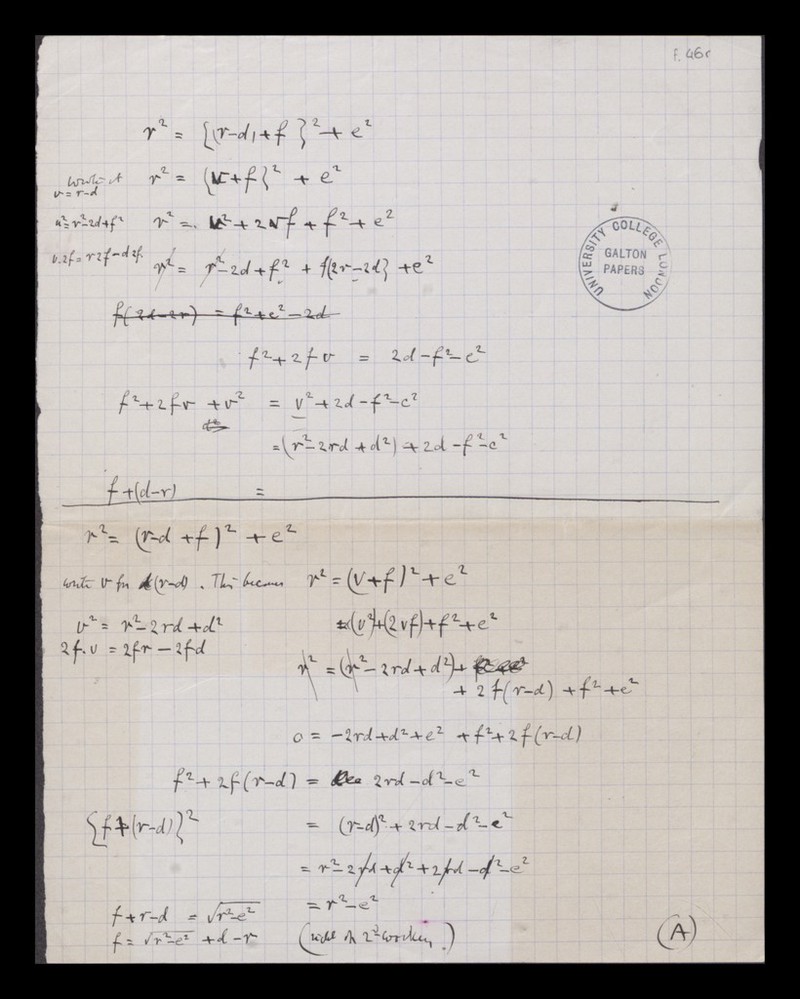 f. 46r
r² = {(r-d) + f}² + e²
v = r-d
r² = {v+f}² + e²
u² = r²-2d+f²
r² = v² + 2vf + f² + e²
v.2f = r2f-d2f.
r² = r²-2d+f² + f{2r-2d} + e²
UNIVERSITY COLLEGE LONDON
GALTON
PAPERS
f(2d-2r) = f²+e²-2d
f²+2fv = 2d-f²-e²
f²+2fv+v² = v²+2d-f²-e²
= (r²-2rd+d²)+2d-f²-e²
f+(d-r) =
r² = (r-d+f)² + e²
write v for (r-d). This becomes r² = (v+f)²+e²
v² = r²-2rd+d²
= (v²)+(2vf)+f²+e²
2f.v = 2fr-2fd
r² = (r²-2rd+d²)+
+ 2f(r-d) + f²+e²
0 = -2rd+d²+e² + f²+2f(r-d)
f²+2f(r-d) = 2rd-d²-e²
{f+(r-d)}² = (r-d)²+2rd-d²-e²
= r²-2rd+d²+2rd-d²-e²
= r²-e²
f+r-d = √r²-e²
f = √r²-e² +d-r
(A)